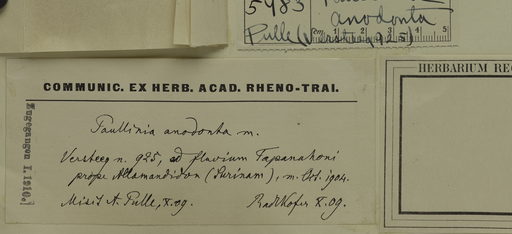 5983
anodonta
Pulle (Versteeg 925)
cm 1 2 3 4 5
HERBARIUM RE
COMMUNIC. EX HERB. ACAD. RHENO-TRAI.
Paullinia anodonta m.
Versteeg n. 925, ad fluvium Tapanahoni
prope (Surinam), m. Oct. 1904.
Misit A. Pulle, X.09. Radlkofer X.09.
Eingegangen I. 1910.